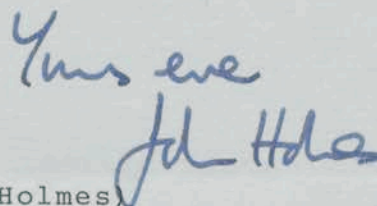 Yours ever
John Holmes
Holmes)